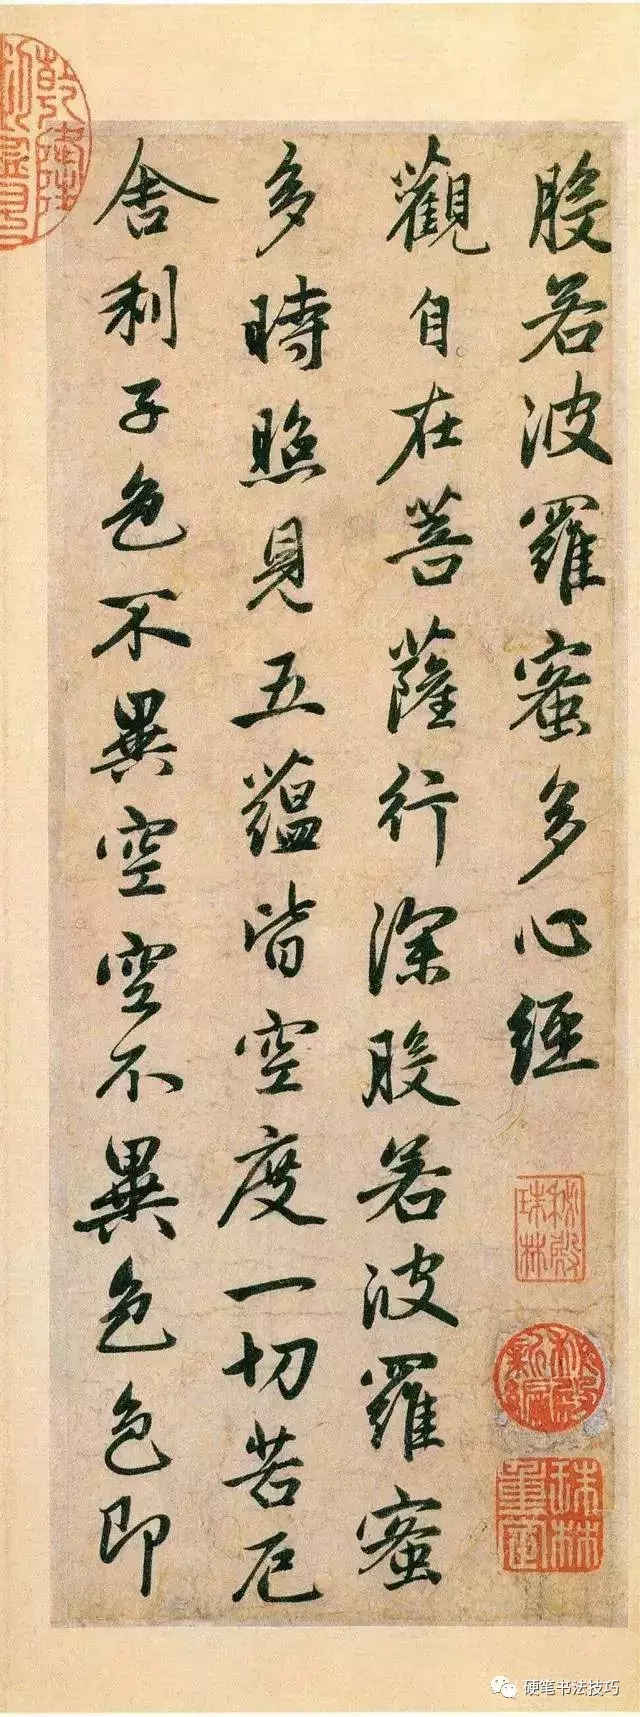 般若波羅蜜多心經
觀自在菩薩行深般若波羅蜜
多時照見五蘊皆空度一切苦厄
舍利子色不異空空不異色色即
秘殿珠林
秘殿新編
珠林重定
乾隆
硬笔书法技巧